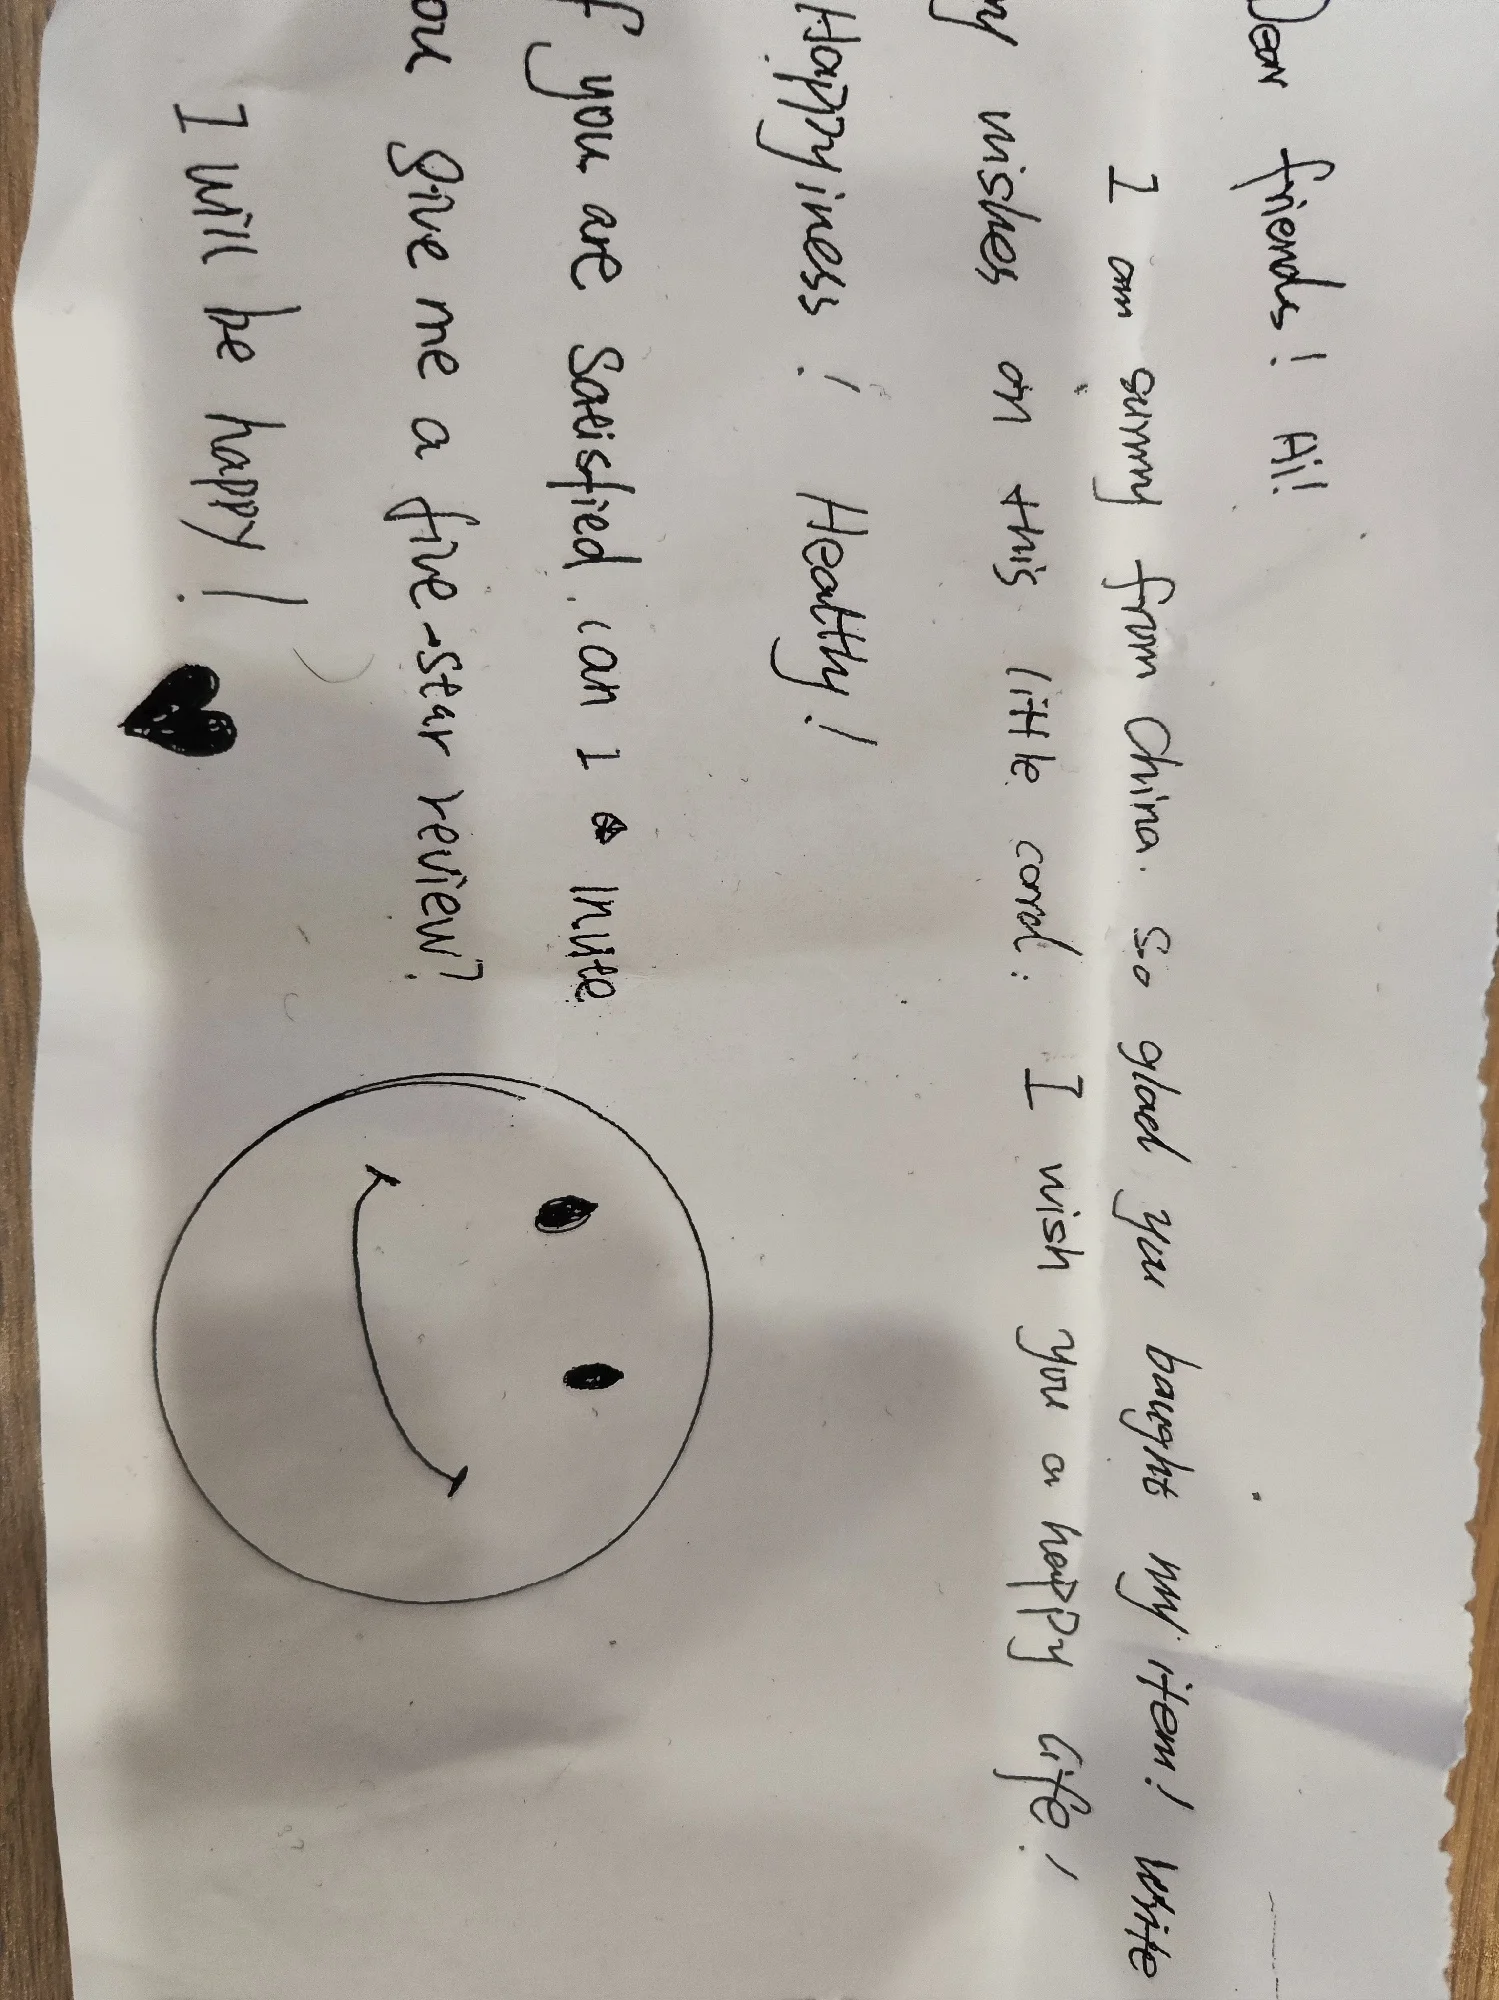 Dear friends! Hi!
I am sunny from China. So glad you baught my item! write
my wishes on this little card: I wish you a happy life!
Happyiness! Healthy!
If you are Satisfied, can I invite
you give me a five-star review?
I will be happy!